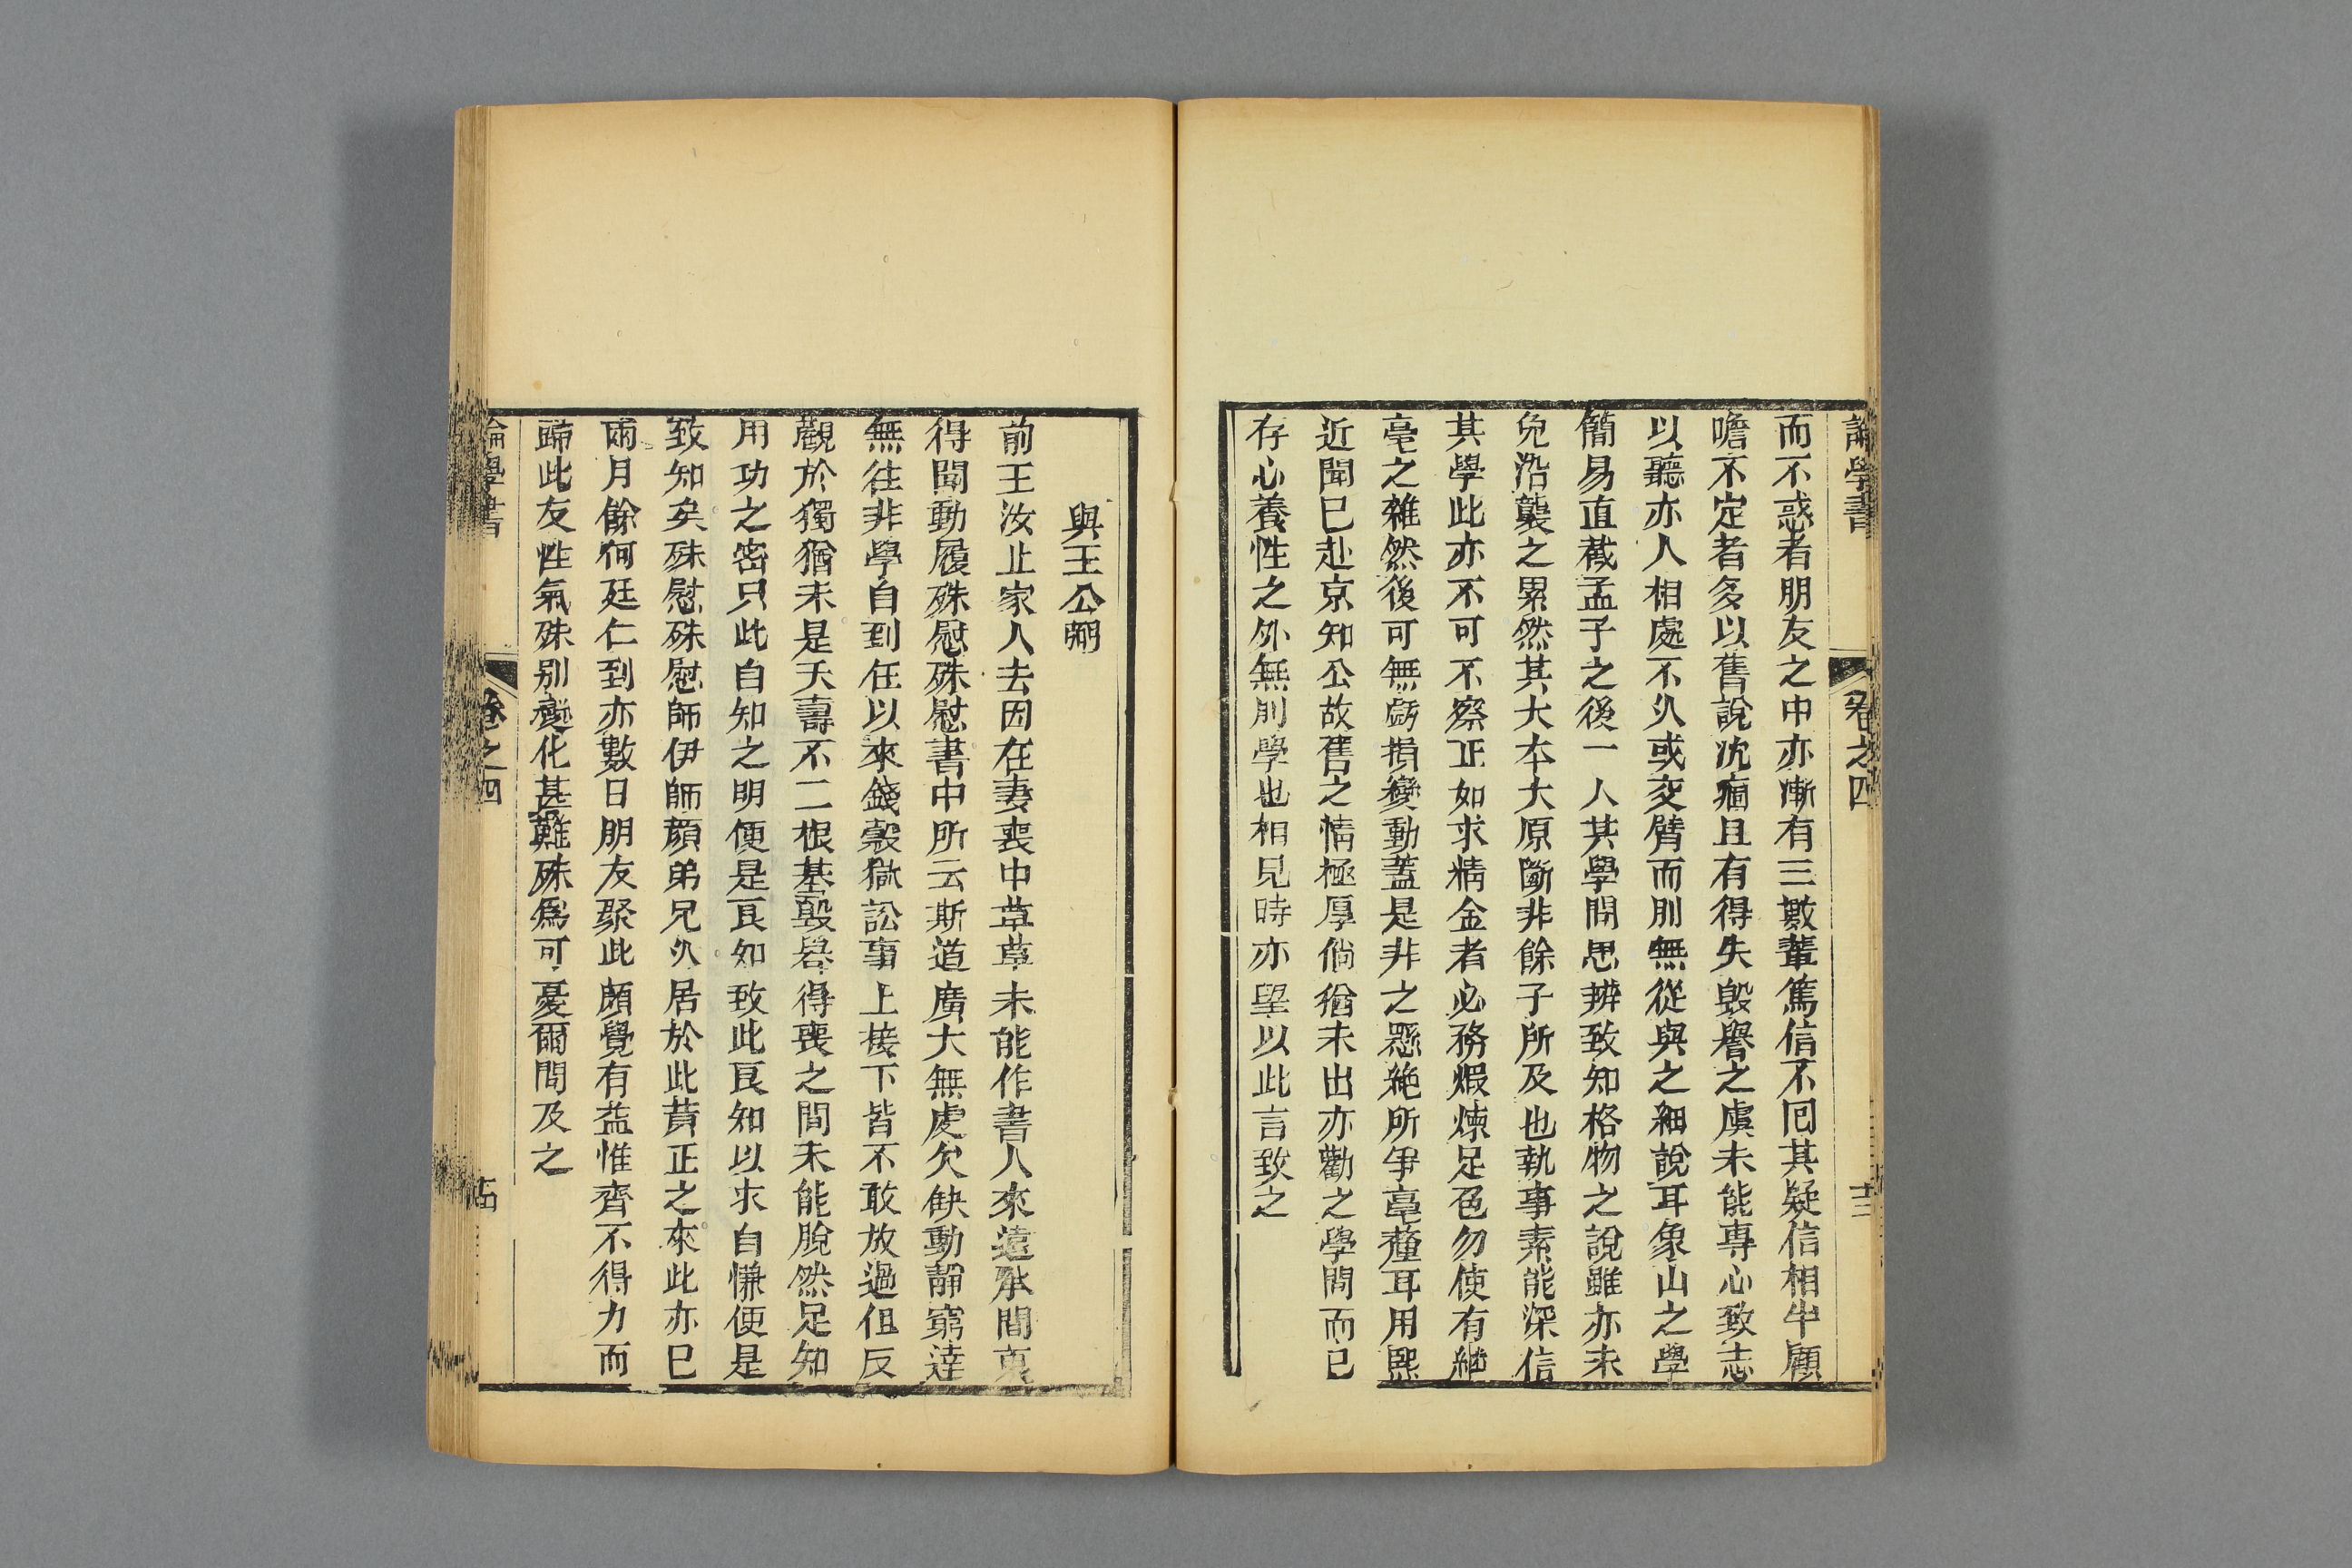 論學書 卷之四 十三
而不惑者朋友之中亦漸有三數輩篤信不回其疑信相半顧
噡不定者多以舊說沈痼且有得失毀譽之虞未能專心致志
以聽亦人相處不久或交臂而別無從與之細說耳象山之學
簡易直截孟子之後一人其學問思辨致知格物之說雖亦未
免沿襲之累然其大本大原斷非餘子所及也執事素能深信
其學此亦不可不察正如求精金者必務煆煉足色勿使有纎
毫之雜然後可無虧損變動蓋是非之懸絶所爭毫釐耳用熙
近聞已赴京知公故舊之情極厚倘猶未出亦勸之學問而已
存心養性之外無別學也相見時亦望以此言致之
與王公弼
前王汝止家人去因在妻喪中草草未能作書人來遠承問
得聞動履殊慰殊慰書中所云斯道廣大無處欠缺動靜窮達
無往非學自到任以來錢穀獄訟事上接下皆不敢放過但反
觀於獨猶未是夭壽不二根基毀譽得喪之間未能脫然足知
用功之密只此自知之明便是良知致此良知以求自慊便是
致知矣殊慰殊慰師伊師顏弟兄久居於此黃正之來此亦已
兩月餘何廷仁到亦數日朋友聚此頗覺有益惟齊不得力而
歸此友性氣殊別變化甚難殊爲可憂爾間及之
論學書 卷之四